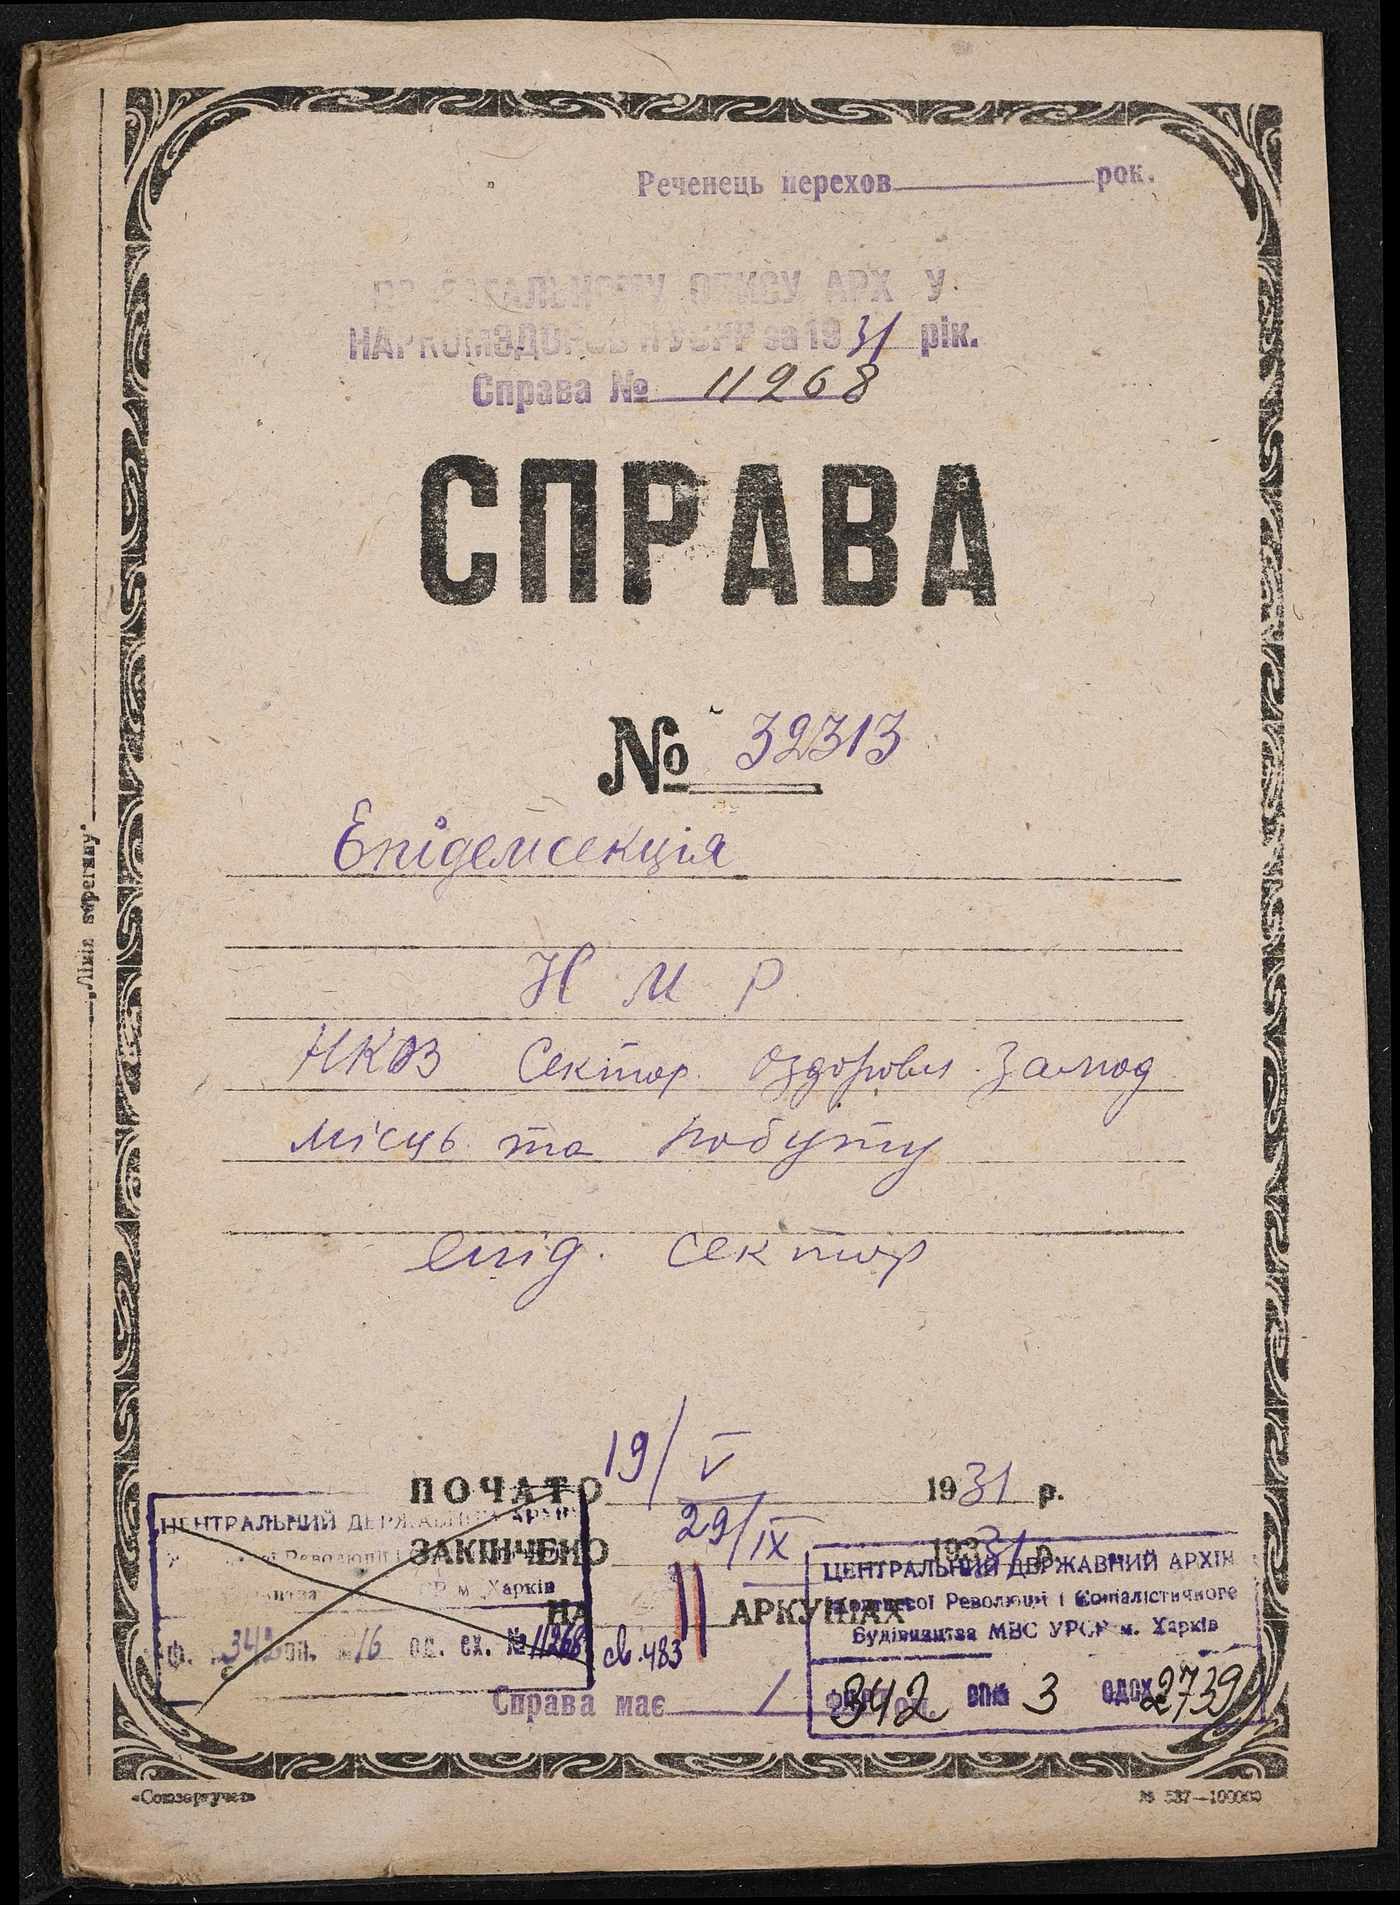 Реченець перехов. рок.
ПО ЗАГАЛЬНОМУ ОПИСУ АРХ У
НАРКОМЗДОРОВ'Я УСРР за 1931 рік.
Справа № 11268
СПРАВА
№ 32313
Епідемсекція
Н М Р
НКОЗ Сектор оздоровл.
місць та побуту
епід. сектор
ПОЧАТО 19/V 1931 р.
ЗАКІНЧЕНО 29/IX 1931 р.
НА АРКУШАХ
ЦЕНТРАЛЬНИЙ ДЕРЖАВНИЙ АРХІВ
Революції і
м. Харків
Ф. 342 оп. 16 од. сх. № 11268
св. 483
Справа має 1
ЦЕНТРАЛЬНИЙ ДЕРЖАВНИЙ АРХІВ
Жовтневої Революції і Соціалістичного
Будівництва МВС УРСР м. Харків
342 оп. 3 2739
„Лінія
«Союзоргучет»
№ 537—100000